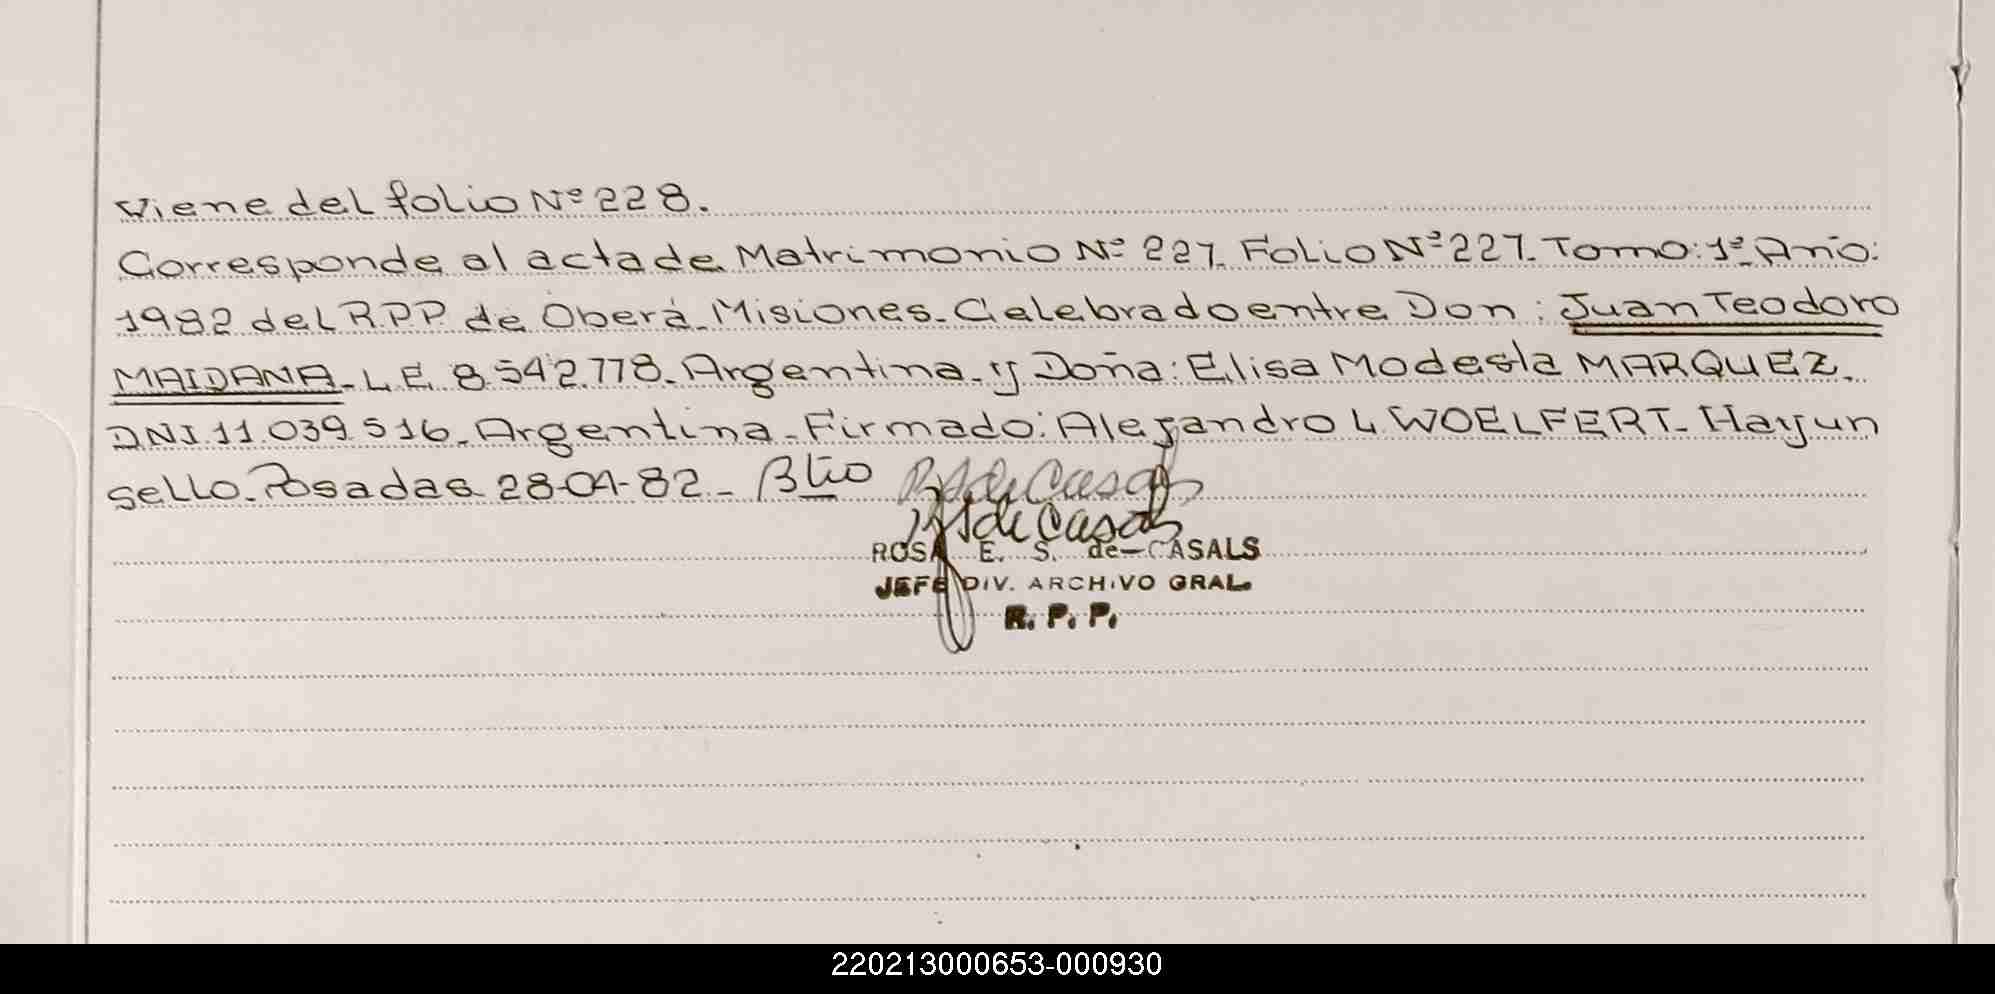 Viene del folio Nº 228.
Corresponde al acta de Matrimonio Nº 227. Folio Nº 227. Tomo: 1º. Año:
1982 del R.P.P. de Oberá. Misiones. Celebrado entre Don: Juan Teodoro
MAIDANA. L.E. 8.542.778. Argentina. y Doña: Elisa Modesta MARQUEZ.
DNI. 11.039.516. Argentina. Firmado: Alejandro L. WOELFERT. Hay un
sello. Posadas 28-04-82. Btio RS de Casals
RS de Casals
ROSA E. S. de CASALS
JEFE DIV. ARCHIVO GRAL.
R. P. P.
220213000653-000930